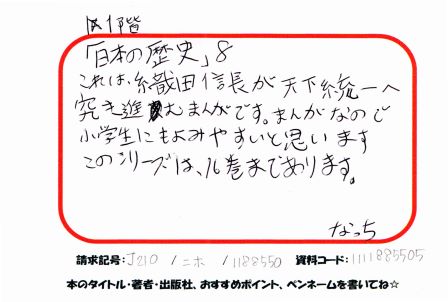 1階
「日本の歴史」8
これは、織田信長が天下統一へ
突き進むまんがです。まんがなので
小学生にもよみやすいと思います
このシリーズは、16巻まであります。
なっち
請求記号:J210 /ニホ /1188550 資料コード:1111885505
本のタイトル・著者・出版社、おすすめポイント、ペンネームを書いてね☆